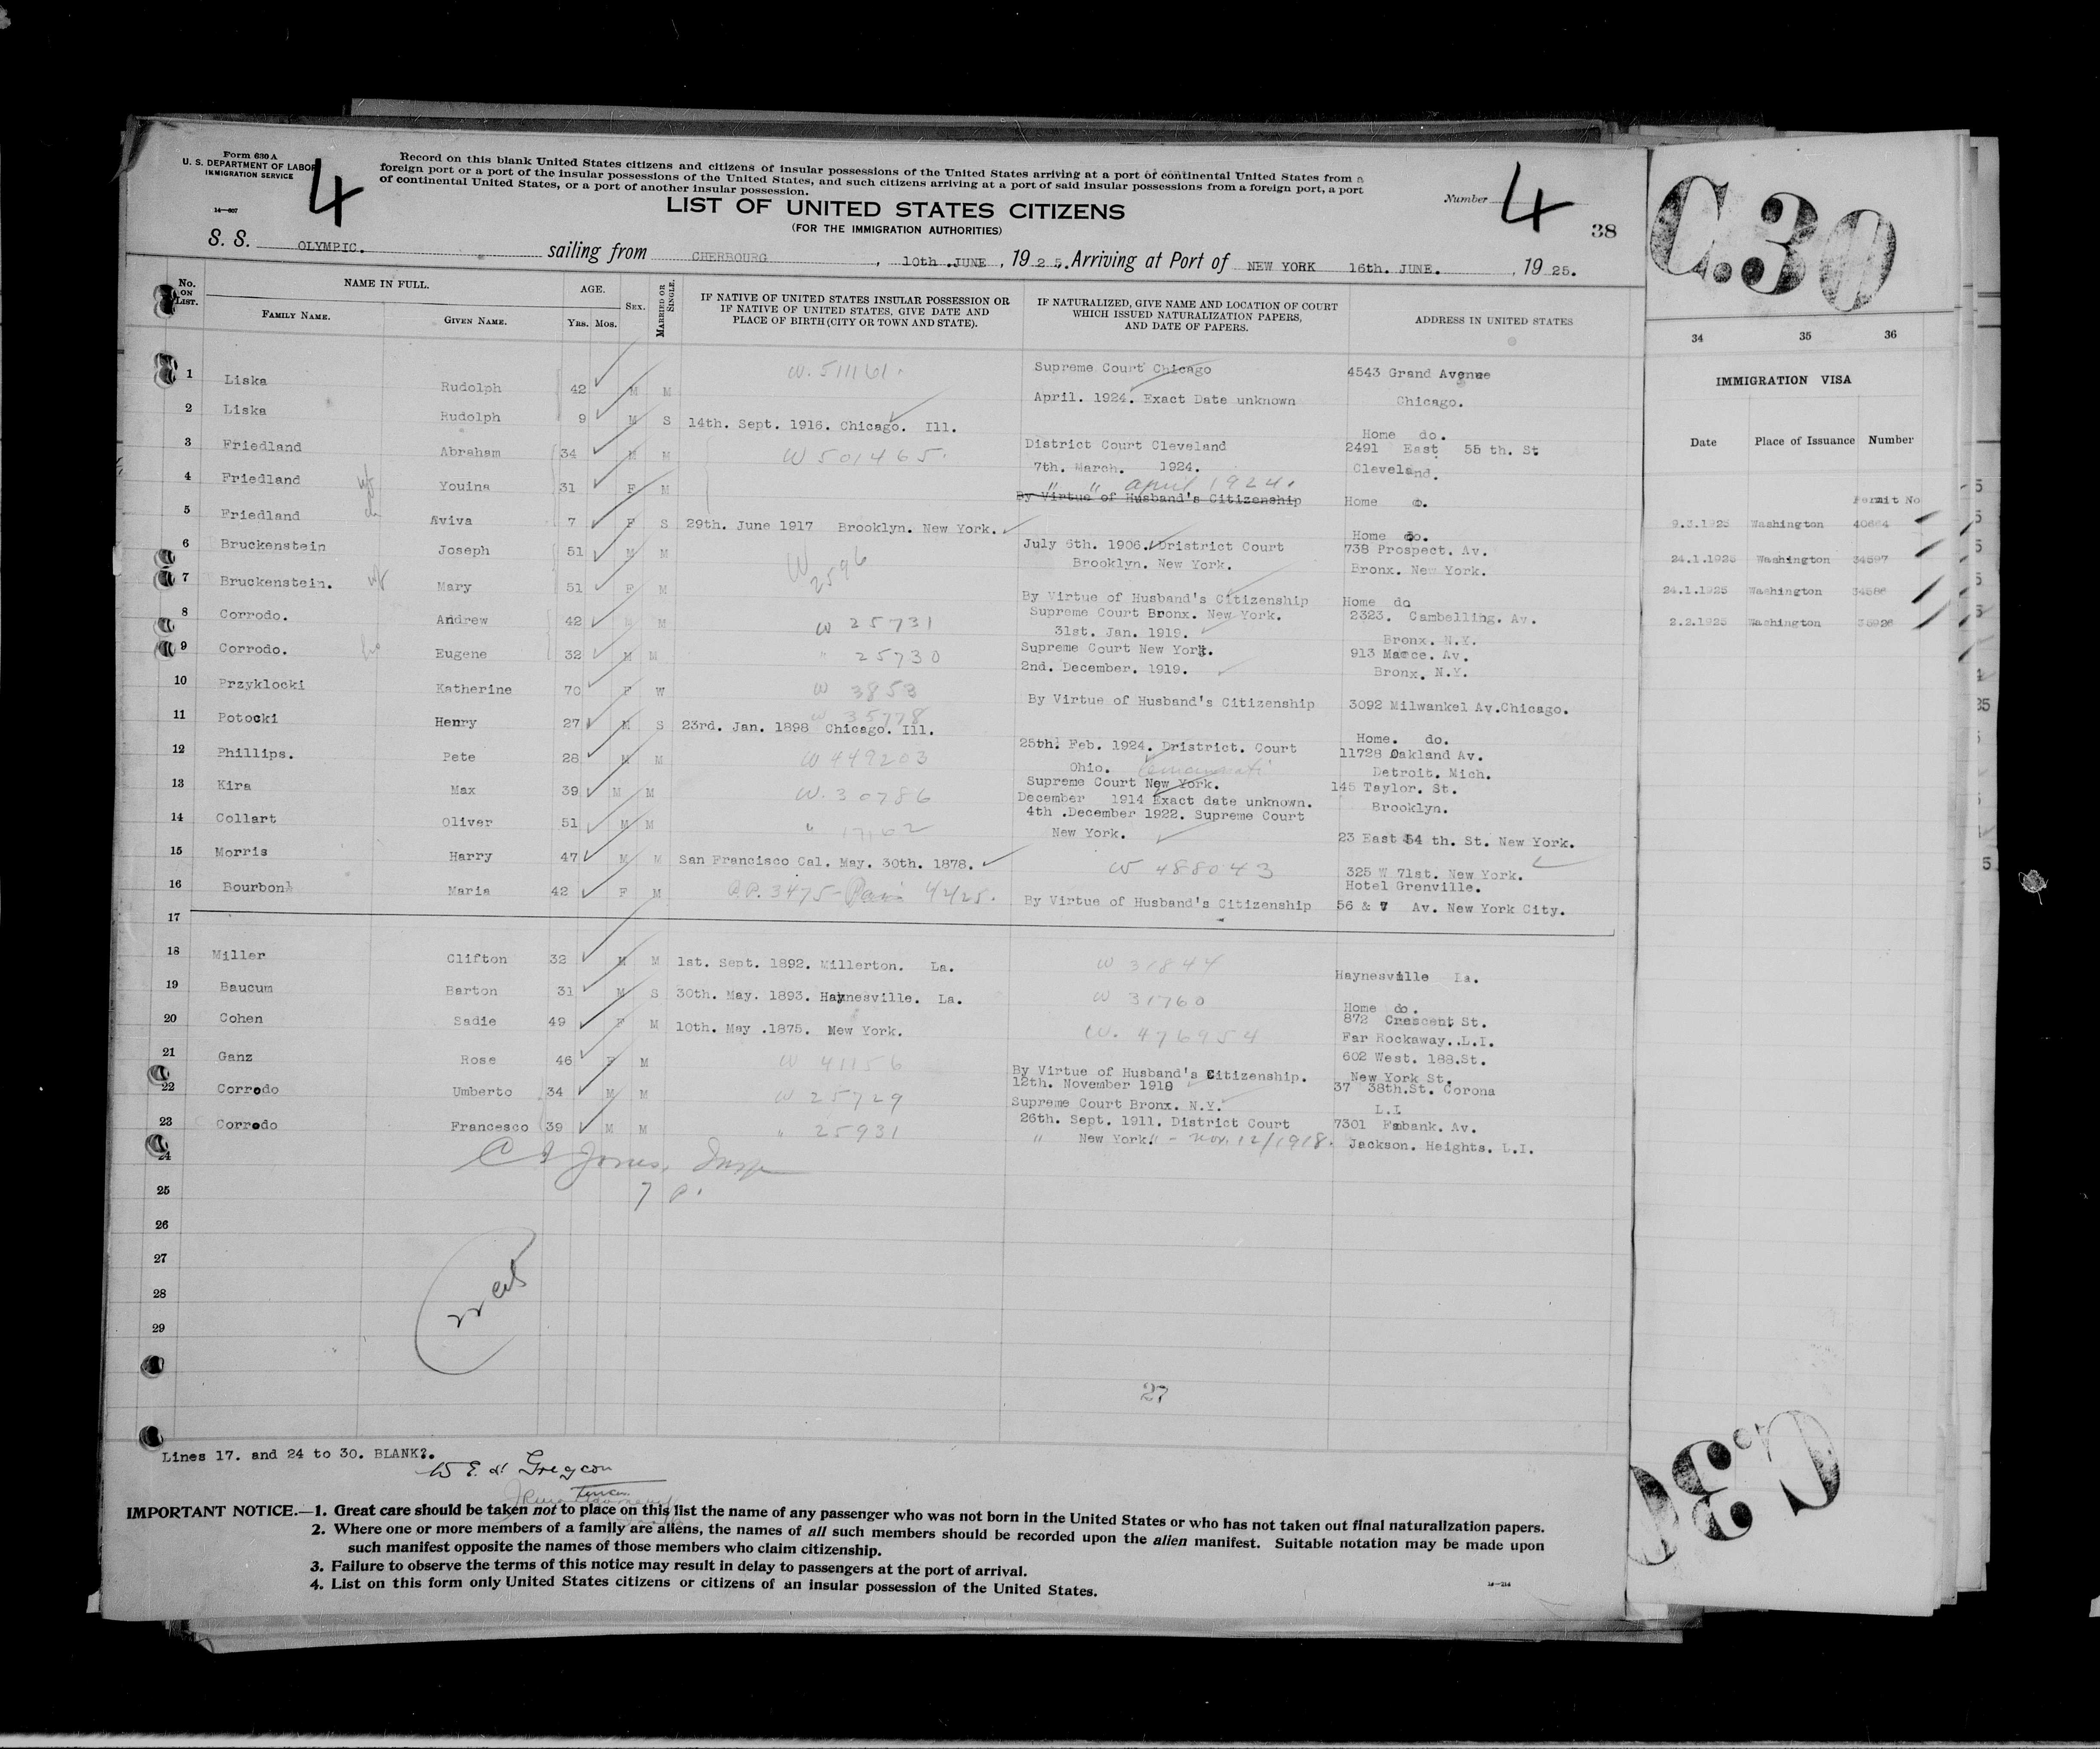 Form 630 A
U. S. DEPARTMENT OF LABOR
IMMIGRATION SERVICE
14—607
4
Record on this blank United States citizens and citizens of insular possessions of the United States arriving at a port of continental United States from a
foreign port or a port of the insular possessions of the United States, and such citizens arriving at a port of said insular possessions from a foreign port, a port
of continental United States, or a port of another insular possession.
Number 4
38
LIST OF UNITED STATES CITIZENS
(FOR THE IMMIGRATION AUTHORITIES)
S. S. OLYMPIC. sailing from CHERBOURG, 10th .JUNE, 1925. Arriving at Port of NEW YORK 16th. JUNE., 1925.
No. ON LIST. NAME IN FULL. FAMILY NAME. GIVEN NAME. AGE. Yrs. Mos. SEX. MARRIED OR SINGLE.
IF NATIVE OF UNITED STATES INSULAR POSSESSION OR
IF NATIVE OF UNITED STATES, GIVE DATE AND
PLACE OF BIRTH (CITY OR TOWN AND STATE).
IF NATURALIZED, GIVE NAME AND LOCATION OF COURT
WHICH ISSUED NATURALIZATION PAPERS,
AND DATE OF PAPERS.
ADDRESS IN UNITED STATES
1 Liska Rudolph 42 M M W. 511161. Supreme Court Chicago 4543 Grand Avenue
April. 1924. Exact Date unknown Chicago.
2 Liska Rudolph 9 M S 14th. Sept. 1916. Chicago. Ill. Home do.
3 Friedland Abraham 34 M M W 501465. District Court Cleveland 2491 East 55 th. St
7th. March. 1924. Cleveland.
4 Friedland wf Youina 31 F M " " april 1924.
By Virtue of Husband's Citizenship Home do.
5 Friedland Aviva 7 F S 29th. June 1917 Brooklyn. New York. Home do.
6 Bruckenstein Joseph 51 M M W 2596 July 6th. 1906. Dristrict Court 738 Prospect. Av.
Brooklyn. New York. Bronx. New York.
7 Bruckenstein. wf Mary 51 F M By Virtue of Husband's Citizenship Home do
8 Corrodo. Andrew 42 M M W 25731 Supreme Court Bronx. New York. 2323. Cambelling. Av.
31st. Jan. 1919. Bronx. N.Y.
9 Corrodo. Eugene 32 M M " 25730 Supreme Court New York. 913 Mamce. Av.
2nd. December. 1919. Bronx. N.Y.
10 Przyklocki Katherine 70 F W W 3853 By Virtue of Husband's Citizenship 3092 Milwankel Av.Chicago.
W 35778
11 Potocki Henry 27 M S 23rd. Jan. 1898 Chicago. Ill. Home. do.
12 Phillips. Pete 28 M M W 449203 25th. Feb. 1924. Dristrict. Court 11728 Oakland Av.
Ohio. Detroit. Mich.
13 Kira Max 39 M M W. 30786 Supreme Court New York. 145 Taylor. St.
December 1914 Exact date unknown. Brooklyn.
14 Collart Oliver 51 M M " 17162 4th .December 1922. Supreme Court
New York. 23 East 54 th. St. New York.
15 Morris Harry 47 M M San Francisco Cal. May. 30th. 1878. W 488043 325 W 71st. New York.
16 Bourbon Maria 42 F M P.P. 3475-Paris 4/4/25. By Virtue of Husband's Citizenship Hotel Grenville.
56 & 7 Av. New York City.
17
18 Miller Clifton 32 M M 1st. Sept. 1892. Millerton. La. W 31844 Haynesville La.
19 Baucum Barton 31 M S 30th. May. 1893. Haynesville. La. W 31760 Home do.
20 Cohen Sadie 49 F M 10th. May .1875. New York. W. 476954 872 Crescent St.
Far Rockaway..L.I.
21 Ganz Rose 46 F M W 41156 By Virtue of Husband's Citizenship. 602 West. 188.St.
New York St.
22 Corrodo Umberto 34 M M W 25729 12th. November 1918 37 38th.St. Corona
Supreme Court Bronx. N.Y. L.I
23 Corrodo Francesco 39 M M " 25931 26th. Sept. 1911. District Court 7301 Fmbank. Av.
" New York." - Nov. 12/1918. Jackson. Heights. L.I.
24
C Jones, Insp
7 P.
25
26
27
28
29
22 cit
27
Lines 17. and 24 to 30. BLANK?.
IMPORTANT NOTICE.—1. Great care should be taken not to place on this list the name of any passenger who was not born in the United States or who has not taken out final naturalization papers.
2. Where one or more members of a family are aliens, the names of all such members should be recorded upon the alien manifest. Suitable notation may be made upon
such manifest opposite the names of those members who claim citizenship.
3. Failure to observe the terms of this notice may result in delay to passengers at the port of arrival.
4. List on this form only United States citizens or citizens of an insular possession of the United States.
14—214
C.30
34 35 36
IMMIGRATION VISA
Date Place of Issuance Number
Permit No
9.3.1925 Washington 40664
24.1.1925 Washington 34597
24.1.1925 Washington 34586
2.2.1925 Washington 35926
C.30